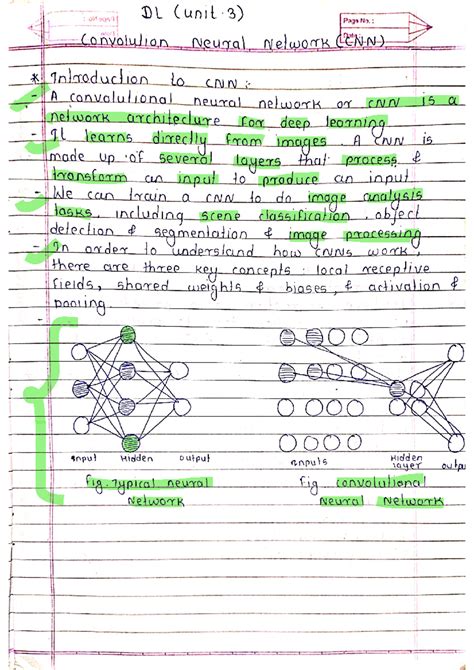 DL (unit-3)
Page No. :
Convolution Neural Network (CNN)
* Introduction to CNN :
- A convolutional neural network or CNN is a
network architecture for deep learning
- It learns directly from images. A CNN is
made up of several layers that process &
transform an input to produce an input
- We can train a CNN to do image analysis
tasks, including scene classification, object
detection & segmentation & image processing
- In order to understand how CNNs work,
there are three key concepts : local receptive
fields, shared weights & biases, & activation &
pooling.
input Hidden output
inputs Hidden layer output
fig. Typical neural
Network
fig convolutional
Neural Network